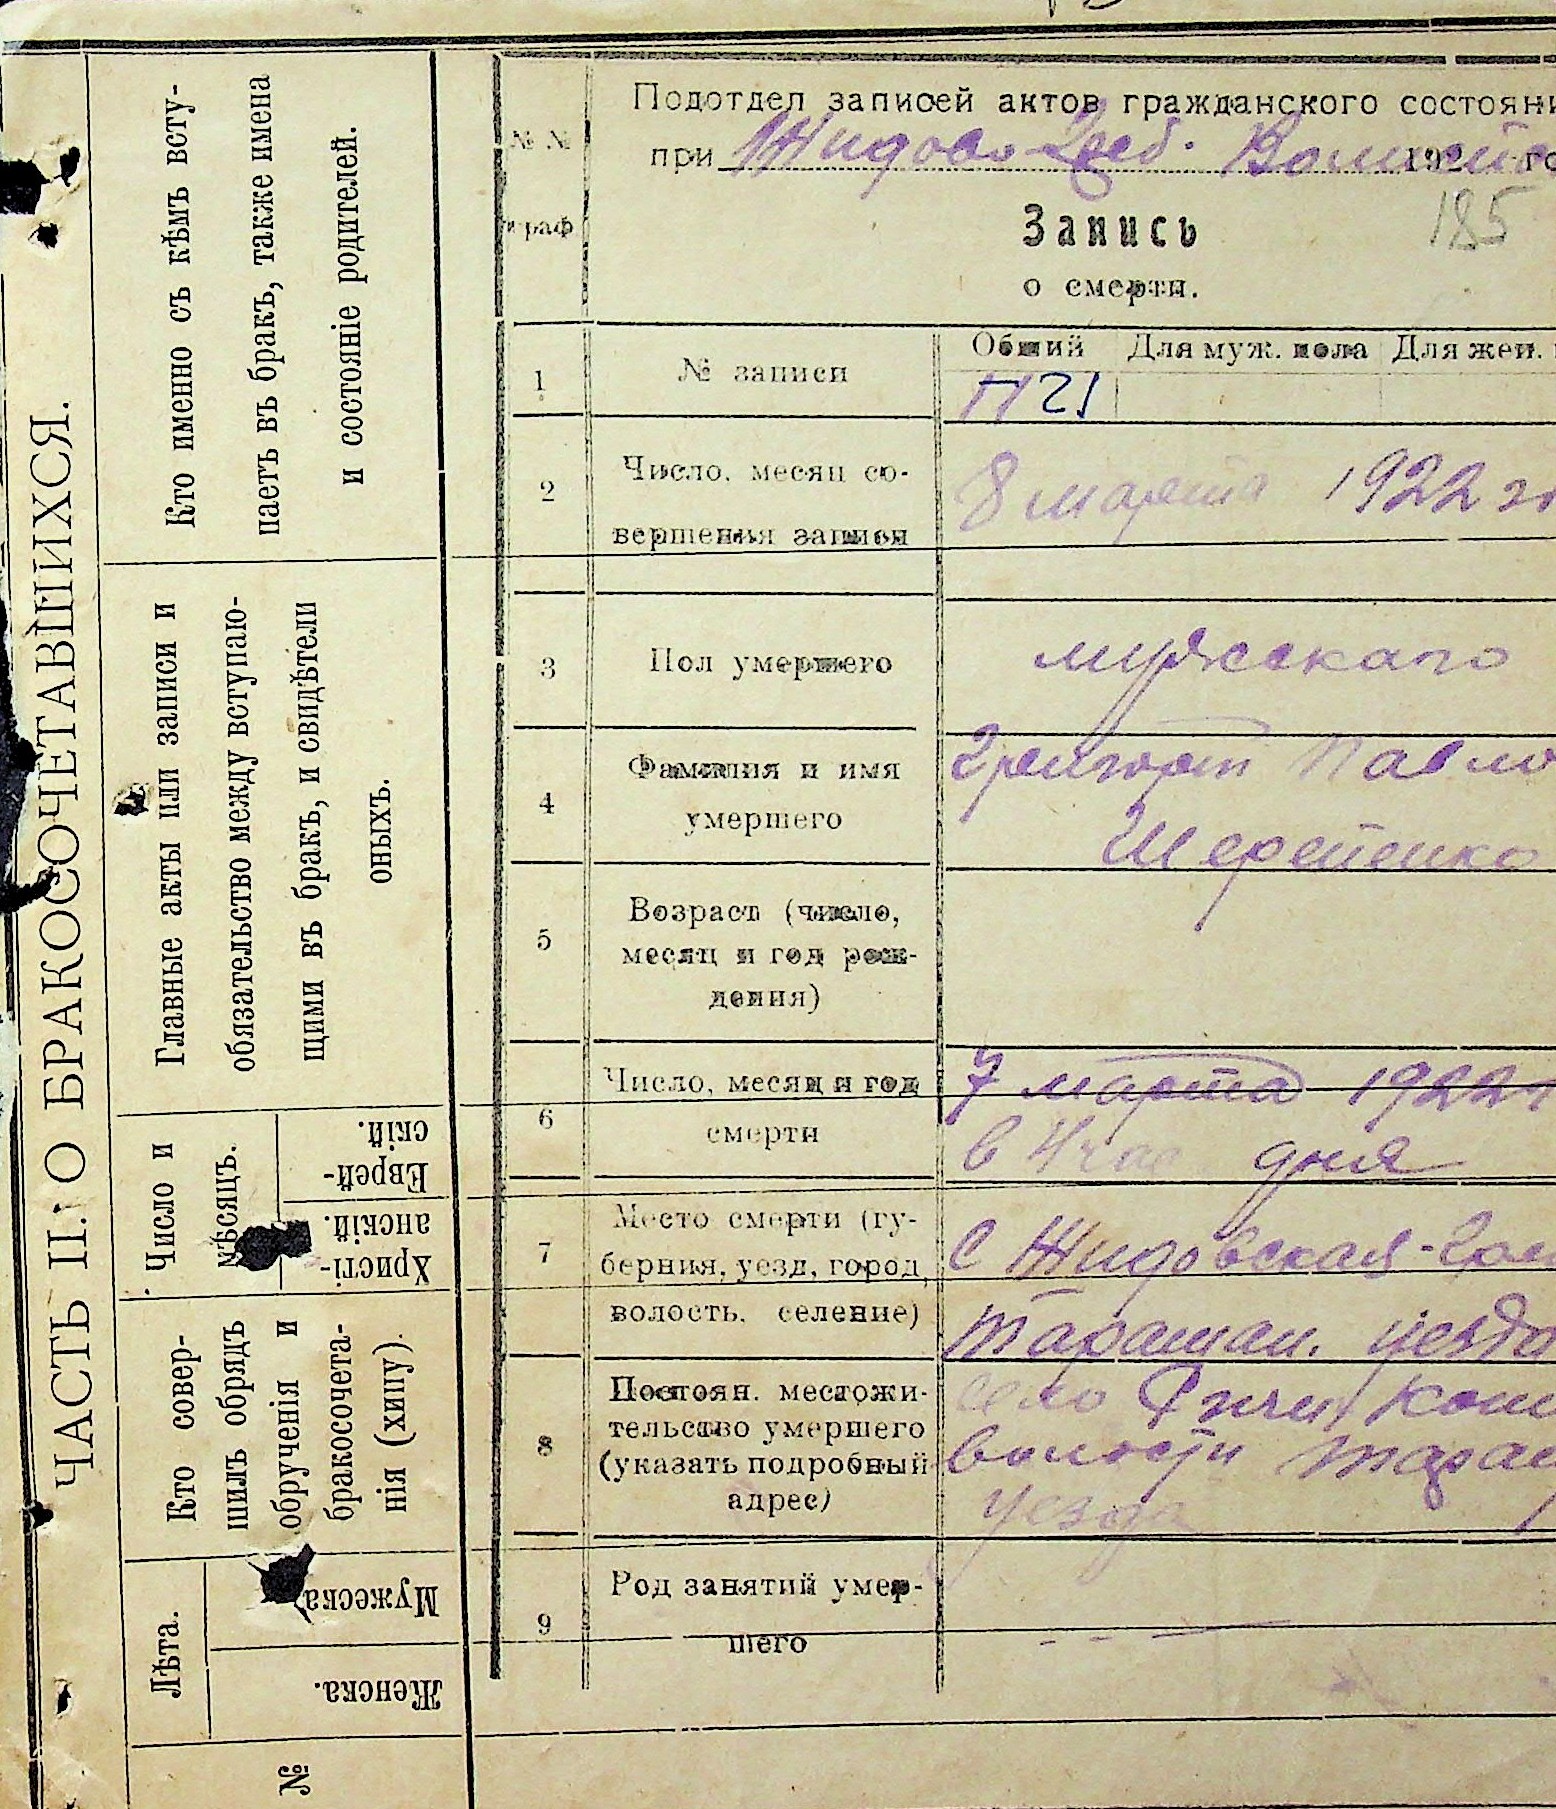 ЧАСТЬ II. О БРАКОСОЧЕТАВШИХСЯ.
Кто именно съ кѣмъ всту-
паетъ въ бракъ, также имена
и состояніе родителей.
Главные акты или записи и
обязательство между вступаю-
щими въ бракъ, и свидѣтели
оныхъ.
Число и
мѣсяцъ.
Еврей-
скій.
Христі-
анскій.
Кто совер-
шилъ обрядъ
обрученія и
бракосочета-
нія (хипу).
Лѣта.
Мужеска
Женска.
№
№ №
граф
Подотдел записей актов гражданского состояни
при Жидово-Греб. 192 го
185
Запись
о смерти.
Общий Для муж. пола Для жен.
1 № записи
21
2 Число, месяц со-
вершения записи
8 марта 1922 го
3 Пол умершего
мужескаго
4 Фамилия и имя
умершего
Павло
5 Возраст (число,
месяц и год рож-
дения)
6 Число, месяц и год
смерти
7 марта 1922 г
в 4 час дня
7 Место смерти (гу-
берния, уезд, город,
волость, селение)
с Жидовская-
Таращан. уезда
8 Постоян. местожи-
тельство умершего
(указать подробный
адрес)
село
волости Таращ
уезда
9 Род занятий умер-
шего